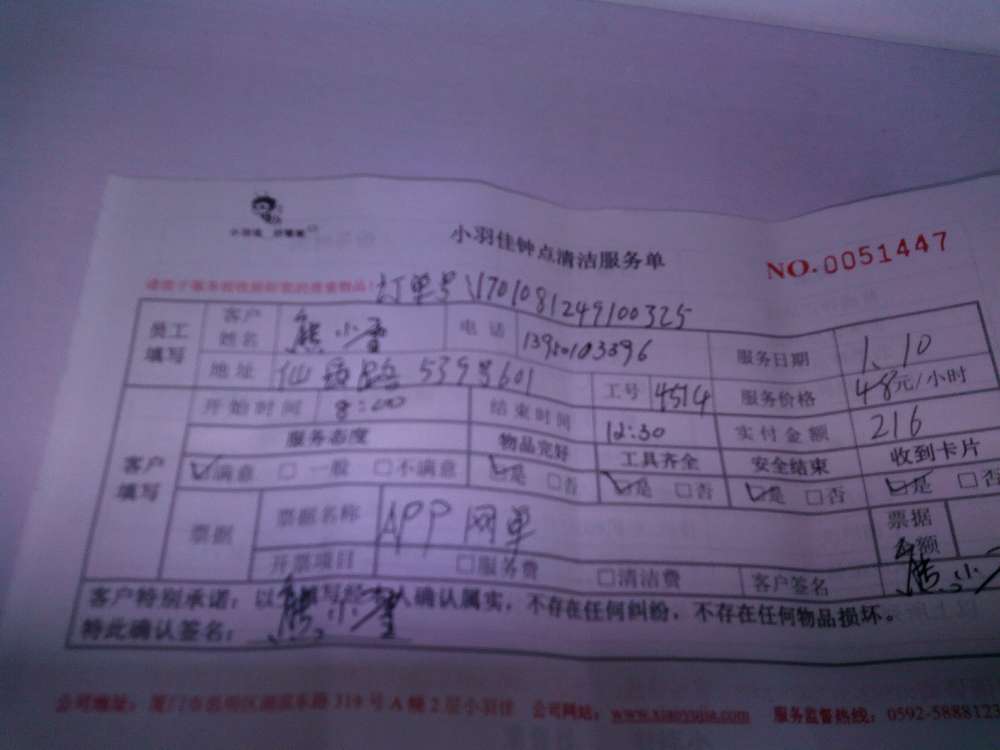 小羽佳钟点清洁服务单
NO.0051447
订单号 1701081249100325
员工填写 客户姓名 熊小 电话 服务日期 1.10
地址 仙岳路539号601 工号 4514 服务价格 48元/小时
客户填写 开始时间 8:00 结束时间 12:30 实付金额 216
服务态度 物品完好 工具齐全 安全结束 收到卡片
☑满意 □一般 □不满意 ☑是 □否 ☑是 □否 ☑是 □否 ☑是 □否
票据 票据名称 APP网单 票据金额
开票项目 □服务费 □清洁费 客户签名 熊小
客户特别承诺：以上填写经本人确认属实，不存在任何纠纷，不存在任何物品损坏。
特此确认签名： 熊小
公司地址：厦门市思明区湖滨东路319号A幢2层小羽佳 公司网站：www.xiaoyujia.com 服务监督热线：0592-5888123